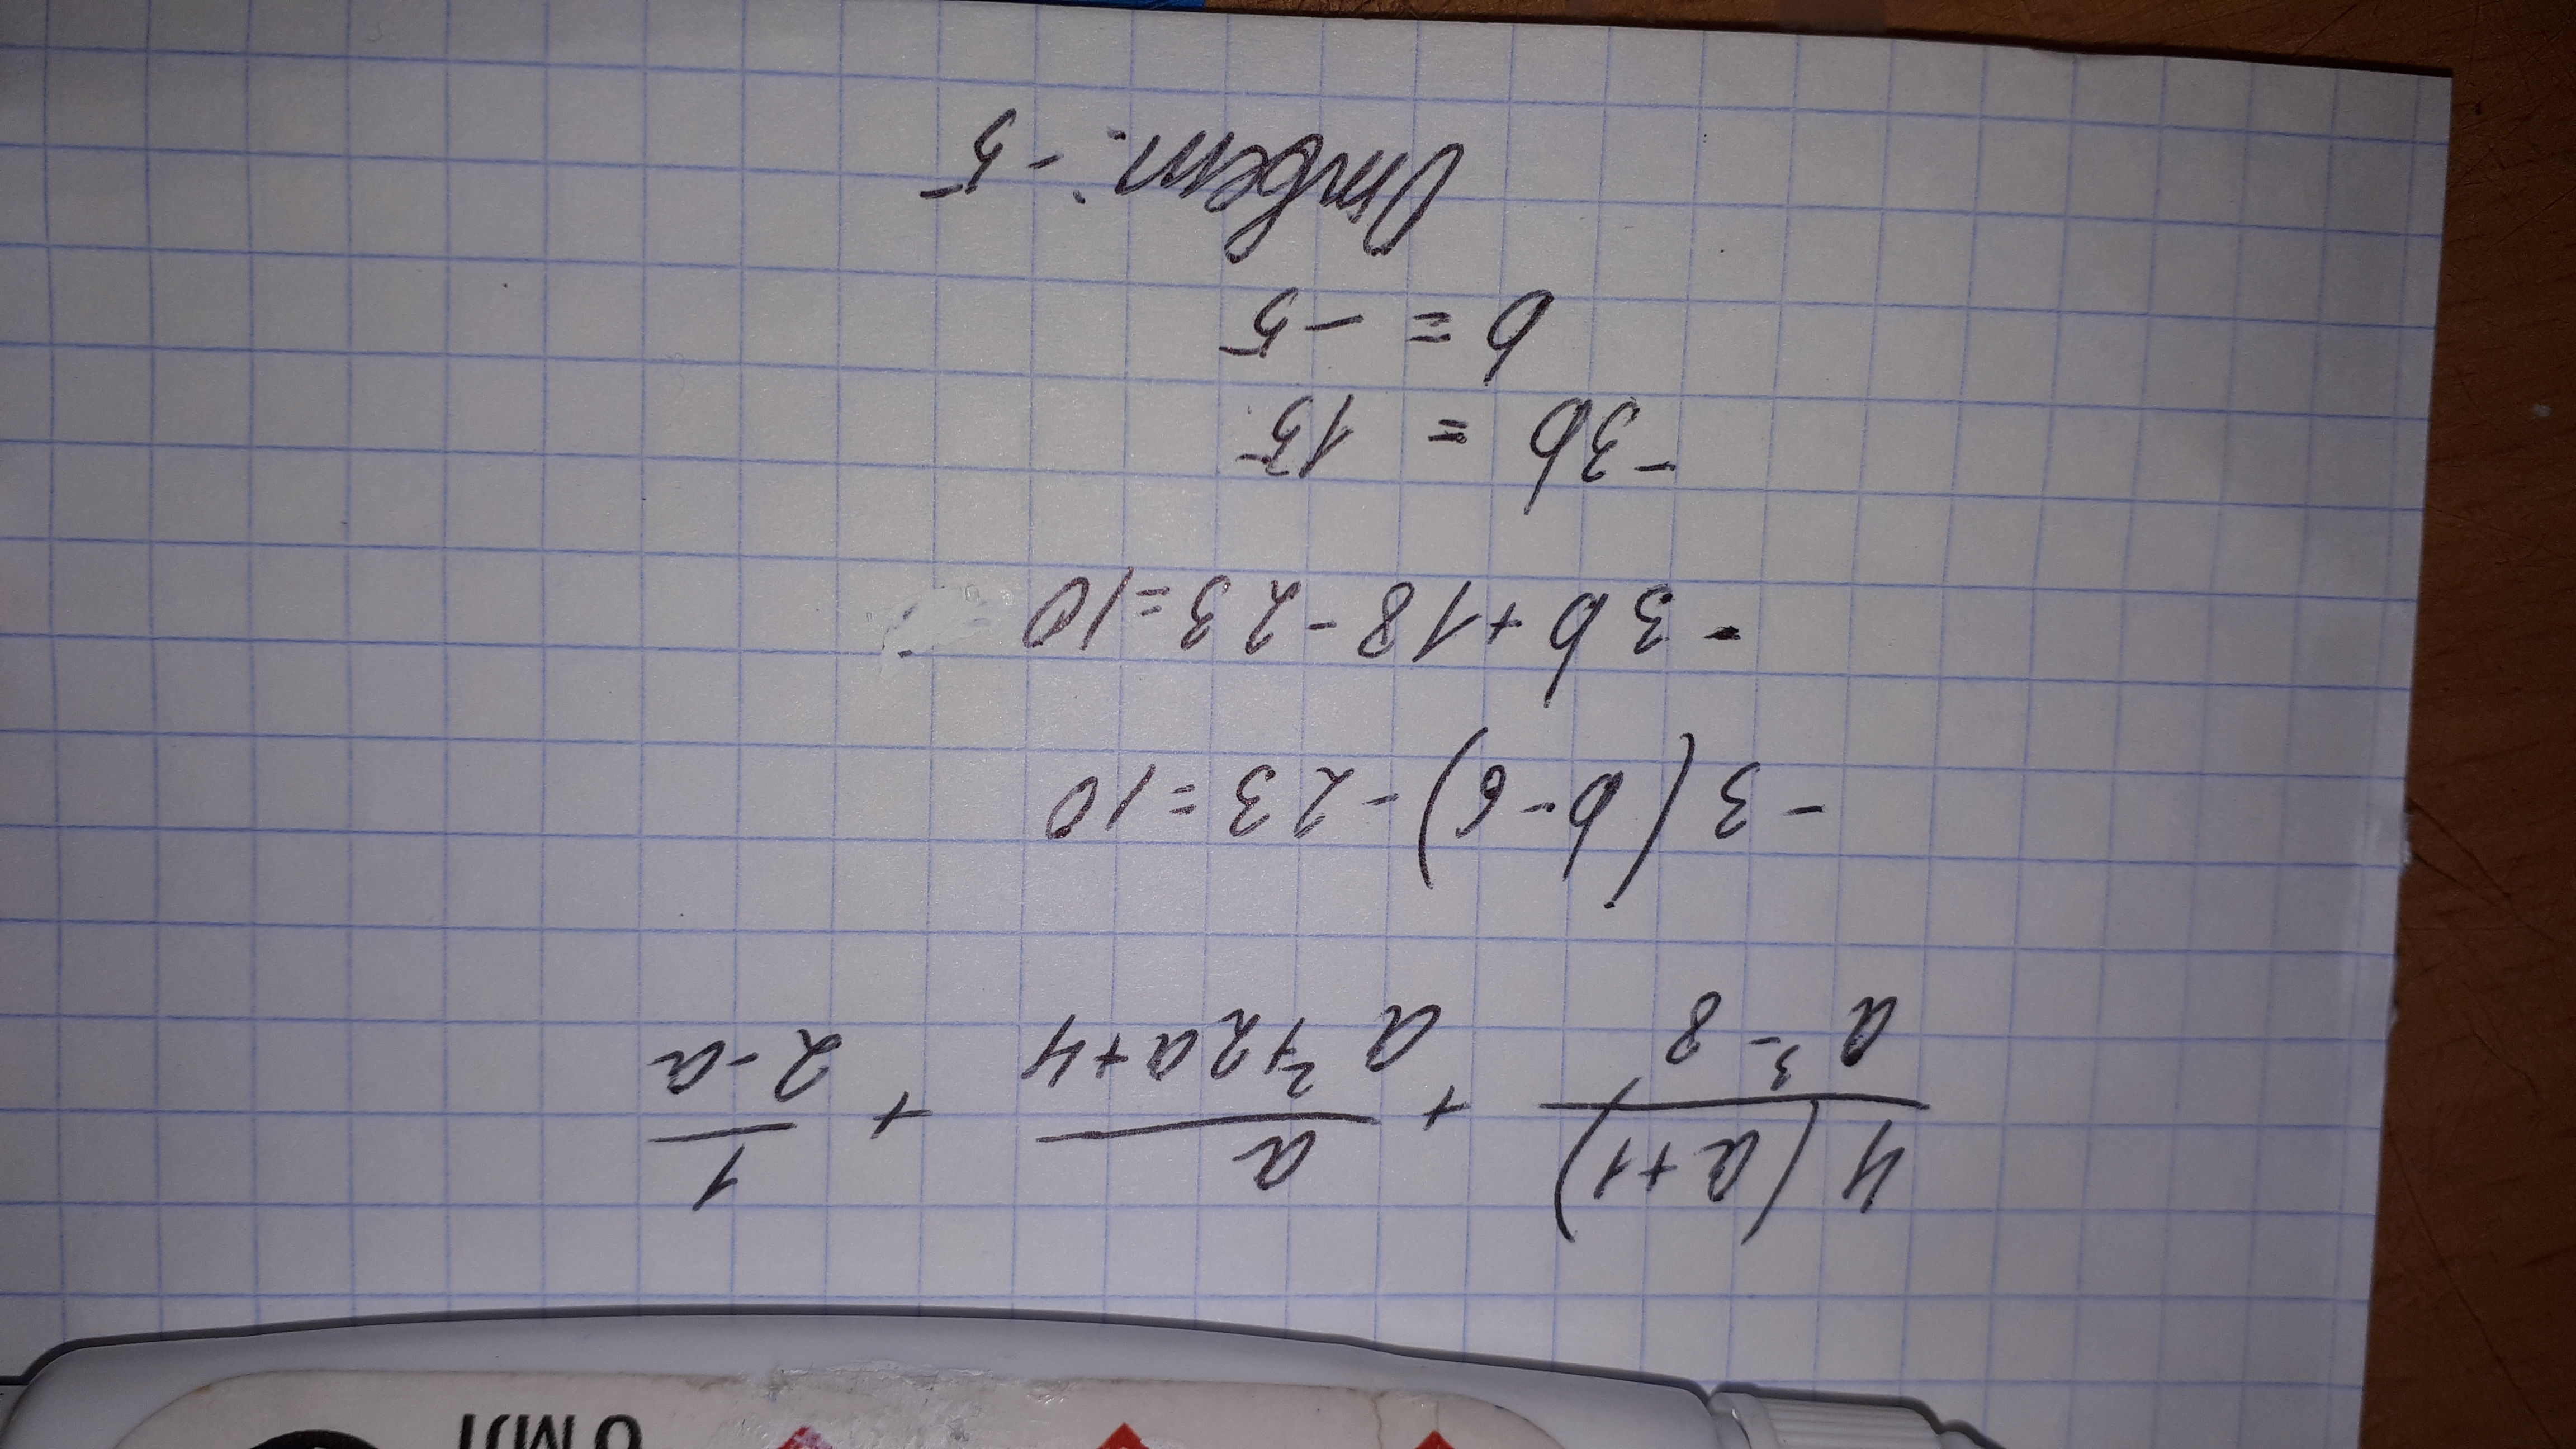 4(a+1)/(a³-8) + a/(a²+2a+4) + 1/(2-a)
-3(b-6)-23=10
-3b+18-23=10
-3b = 15
b = -5
Ответ: -5